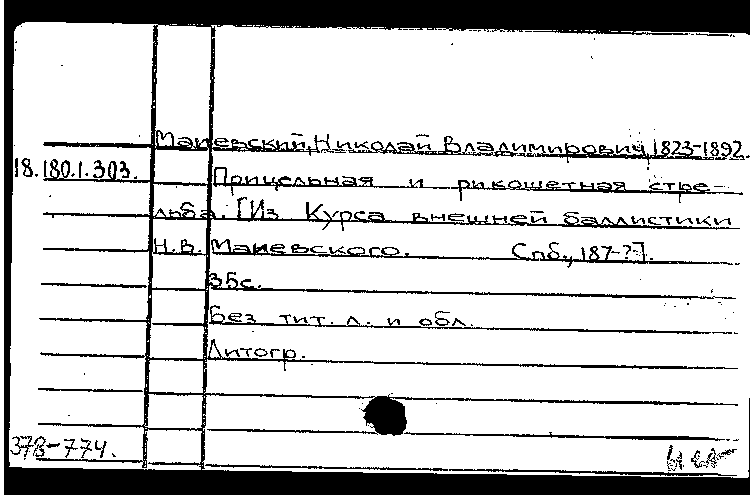 Маиевский, Николай Владимирович, 1823-1892.
18.180.1.303.
Прицельная и рикошетная стре-
льба. [Из Курса внешней баллистики
Н.В. Маиевского. Спб., 187-?].
35с.
Без тит. л. и обл.
Литогр.
378-774.